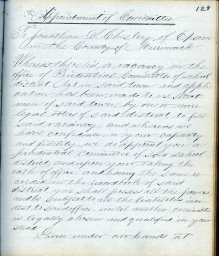 129
Appointment of Committee
To Jonathan S. Chesley of Epsom
in the County of Merrimack
Whereas there is a vacancy in the
office of Prudential Committee of school
district No in said town and appli-
cation has been made to us Select
men of said town by one or more
legal voters of said district to fill
said vacancy and whereas we
have confidence in your capacity
and fidelity we do appoint you a
prudential committee of said school
district and upon your taking the
oath of office and having the same re-
corded in the records of said
district you shall possess all the powers
and be subject to all the liabilities inci-
dent to said office until another committee
is legally chosen and qualified in your
stead
Given under our hands at